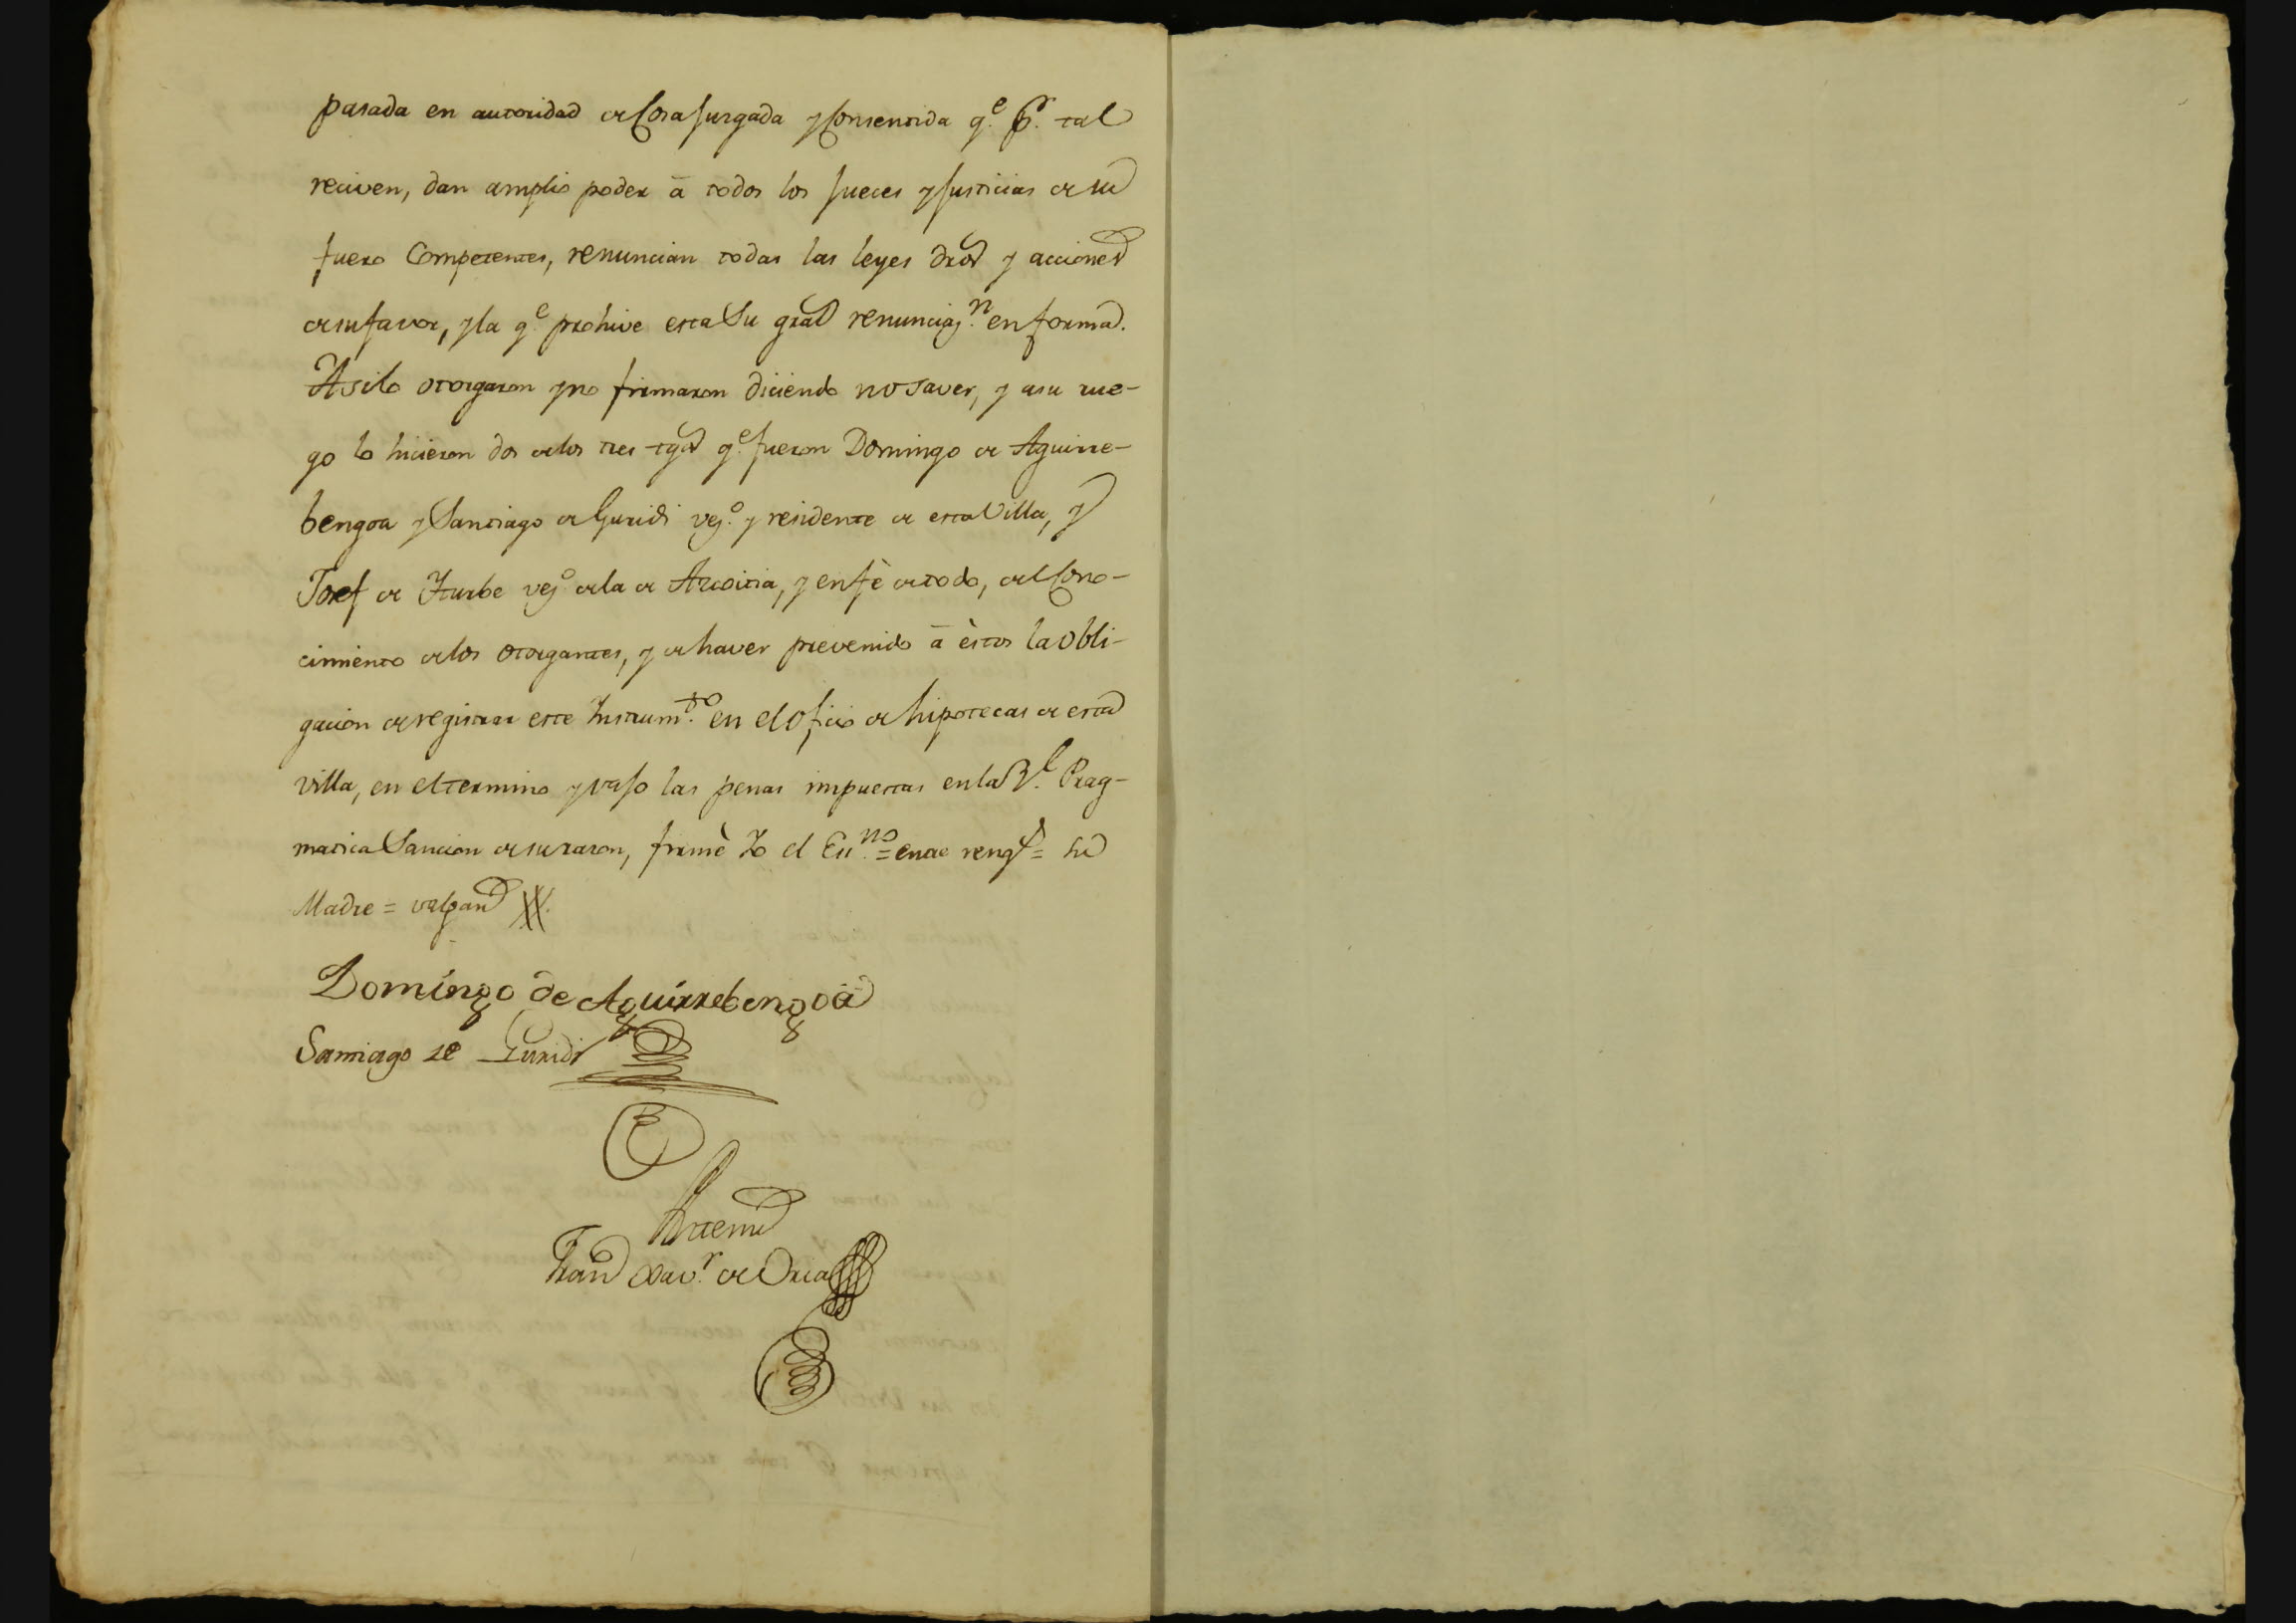 pasada en autoridad de Cosa Jurgada y Consentida q.e Pr. tal
reciven, dan amplio poder ā todos los Jueces y Justicias de su
fuero Competentes, renuncian todas las leyes dros y acciones
de su favor, y la q.e prohive esta Su gral renunciaz.n en forma.
Asilo otorgaron y no firmaron diciendo no saver, y asu rue-
go lo hicieron dos de los tres tgos q.e fueron Domingo de Aguirre-
bengoa y Santiago de Guridi vez.o y residente de esta Villa, y
Josef de Yturbe vez.o de la de Azcoitia, y en fè de todo, del Cono-
cimiento de los otorgantes, y de haver prevenido ā èstos la obli-
gacion de registrar este Instrum.to en el oficio de hipotecas de esta
villa, en el termino y vajo las penas impuestas en la R.l Prag-
matica Sancion de su razon, firmè Yo el Es.no = entre rengs = su
Madre = valgan
Domingo de Aguirrebengoa
Santiago de Guridi
Antemi
Fran Xav.r de Oria